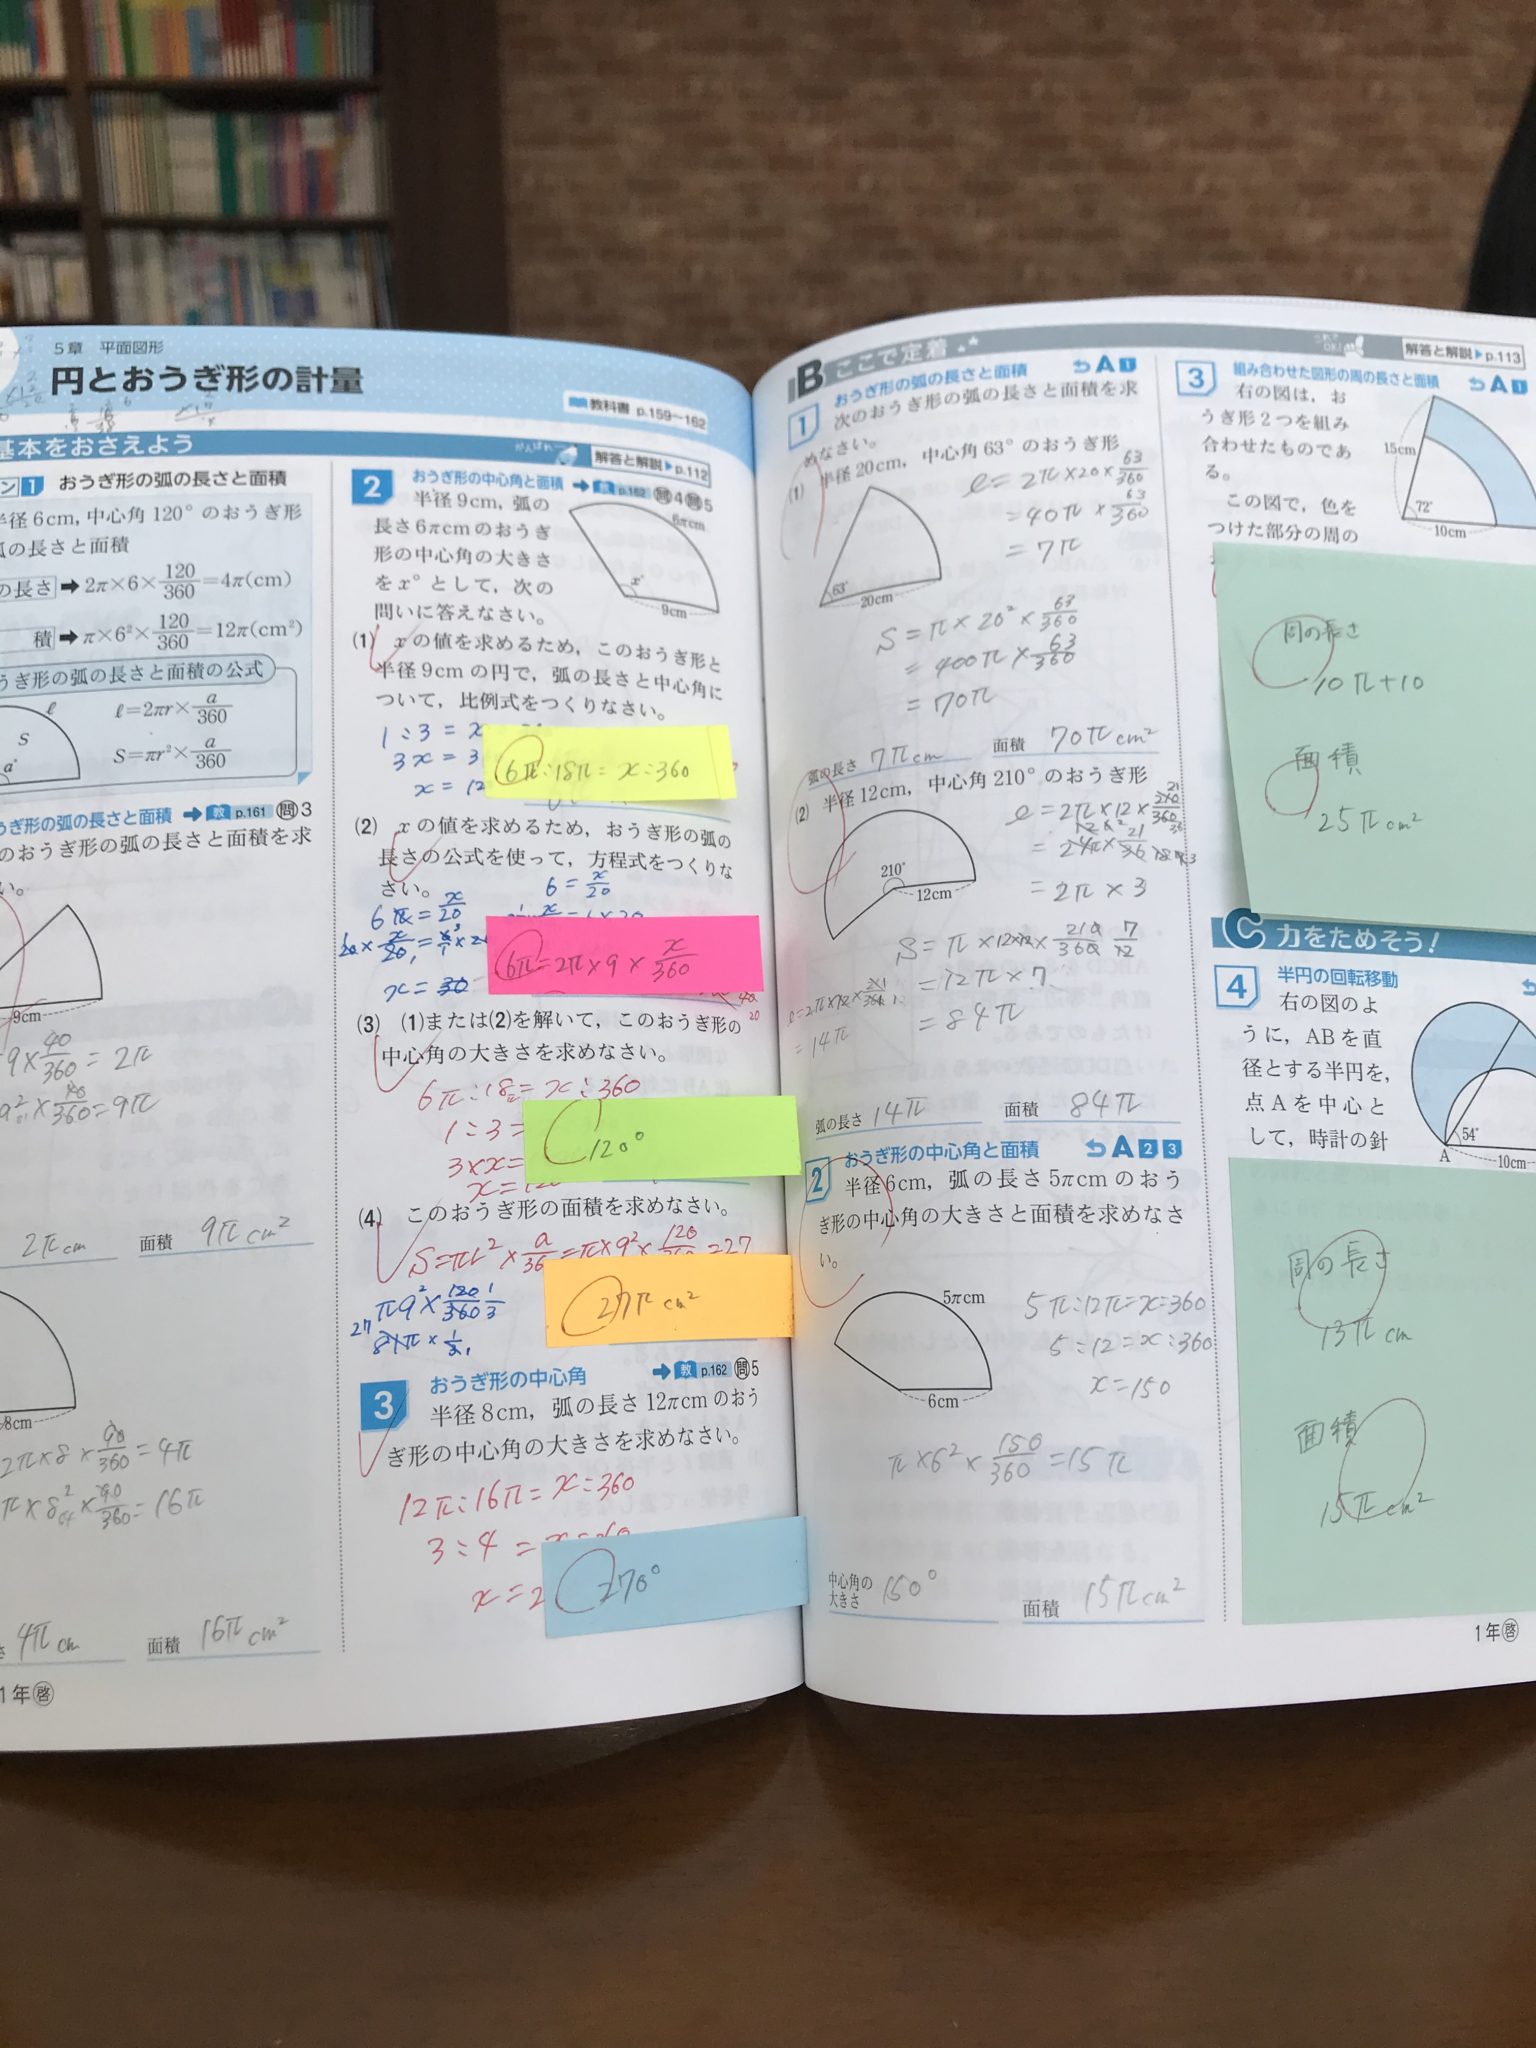 5章 平面図形
円とおうぎ形の計量
教科書 p.159~162
基本をおさえよう
がんばれ
解答と解説▶p.112
1 おうぎ形の弧の長さと面積
半径6cm, 中心角120°のおうぎ形
弧の長さと面積
の長さ ➡ 2π×6×120/360=4π(cm)
積 ➡ π×6²×120/360=12π(cm²)
うぎ形の弧の長さと面積の公式
ℓ
S
a°
ℓ=2πr×a/360
S=πr²×a/360
うぎ形の弧の長さと面積 ➡ 教 p.161 問3
のおうぎ形の弧の長さと面積を求
い。
9cm
9×40/360=2π
×40/360=9π
2πcm 面積 9πcm²
8cm
2π×8×90/360=4π
π×8²×90/360=16π
さ 4πcm 面積 16πcm²
1年啓
2 おうぎ形の中心角と面積 ➡ 教 p.162 問4 問5
半径9cm, 弧の
長さ6πcmのおうぎ
形の中心角の大きさ
をx°として, 次の
問いに答えなさい。
6πcm
x°
9cm
(1) xの値を求めるため, このおうぎ形と
半径9cmの円で, 弧の長さと中心角に
ついて, 比例式をつくりなさい。
1:3=x
3x=3
x=12
6π:18π=x:360
(2) xの値を求めるため, おうぎ形の弧の
長さの公式を使って, 方程式をつくりな
さい。
6=x/20
6π=x/20
x=30
6π=2π×9×x/360
(3) (1)または(2)を解いて, このおうぎ形の
中心角の大きさを求めなさい。
6π:18π=x:360
1:3=
3×x=
x=120
120°
(4) このおうぎ形の面積を求めなさい。
S=πr²×a/36=π×9²×120=27
π9²×120/360 1/3
27
81π×1/3
27πcm²
3 おうぎ形の中心角 ➡ 教 p.162 問5
半径8cm, 弧の長さ12πcmのおう
ぎ形の中心角の大きさを求めなさい。
12π:16π=x:360
3:4=x:360
x=2
270°
B ここで定着
これでOK!
解答と解説▶p.113
1 おうぎ形の弧の長さと面積 A1
次のおうぎ形の弧の長さと面積を求
めなさい。
(1) 半径20cm, 中心角63°のおうぎ形
63°
20cm
ℓ=2π×20×63/360
=40π×63/360
=7π
S=π×20²×63/360
=400π×63/360
=70π
弧の長さ 7πcm 面積 70πcm²
(2) 半径12cm, 中心角210°のおうぎ形
210°
12cm
ℓ=2π×12×210/360
=2π×3
S=π×12×12×210/360 7/12
=12π×7
=84π
=14π
弧の長さ 14π 面積 84π
2 おうぎ形の中心角と面積 A23
半径6cm, 弧の長さ5πcmのおう
ぎ形の中心角の大きさと面積を求めなさ
い。
5πcm
6cm
5π:12π=x:360
5:12=x:360
x=150
π×6²×150/360=15π
中心角の大きさ 150° 面積 15πcm²
3 組み合わせた図形の周の長さと面積 A1
右の図は, お
うぎ形2つを組み
合わせたものであ
る。
この図で, 色を
つけた部分の周の
15cm
72°
10cm
周の長さ
10π+10
面積
25πcm²
C 力をためそう!
4 半円の回転移動
右の図のよ
うに, ABを直
径とする半円を,
点Aを中心と
して, 時計の針
54°
A
10cm
周の長さ
13πcm
面積
15πcm²
1年啓